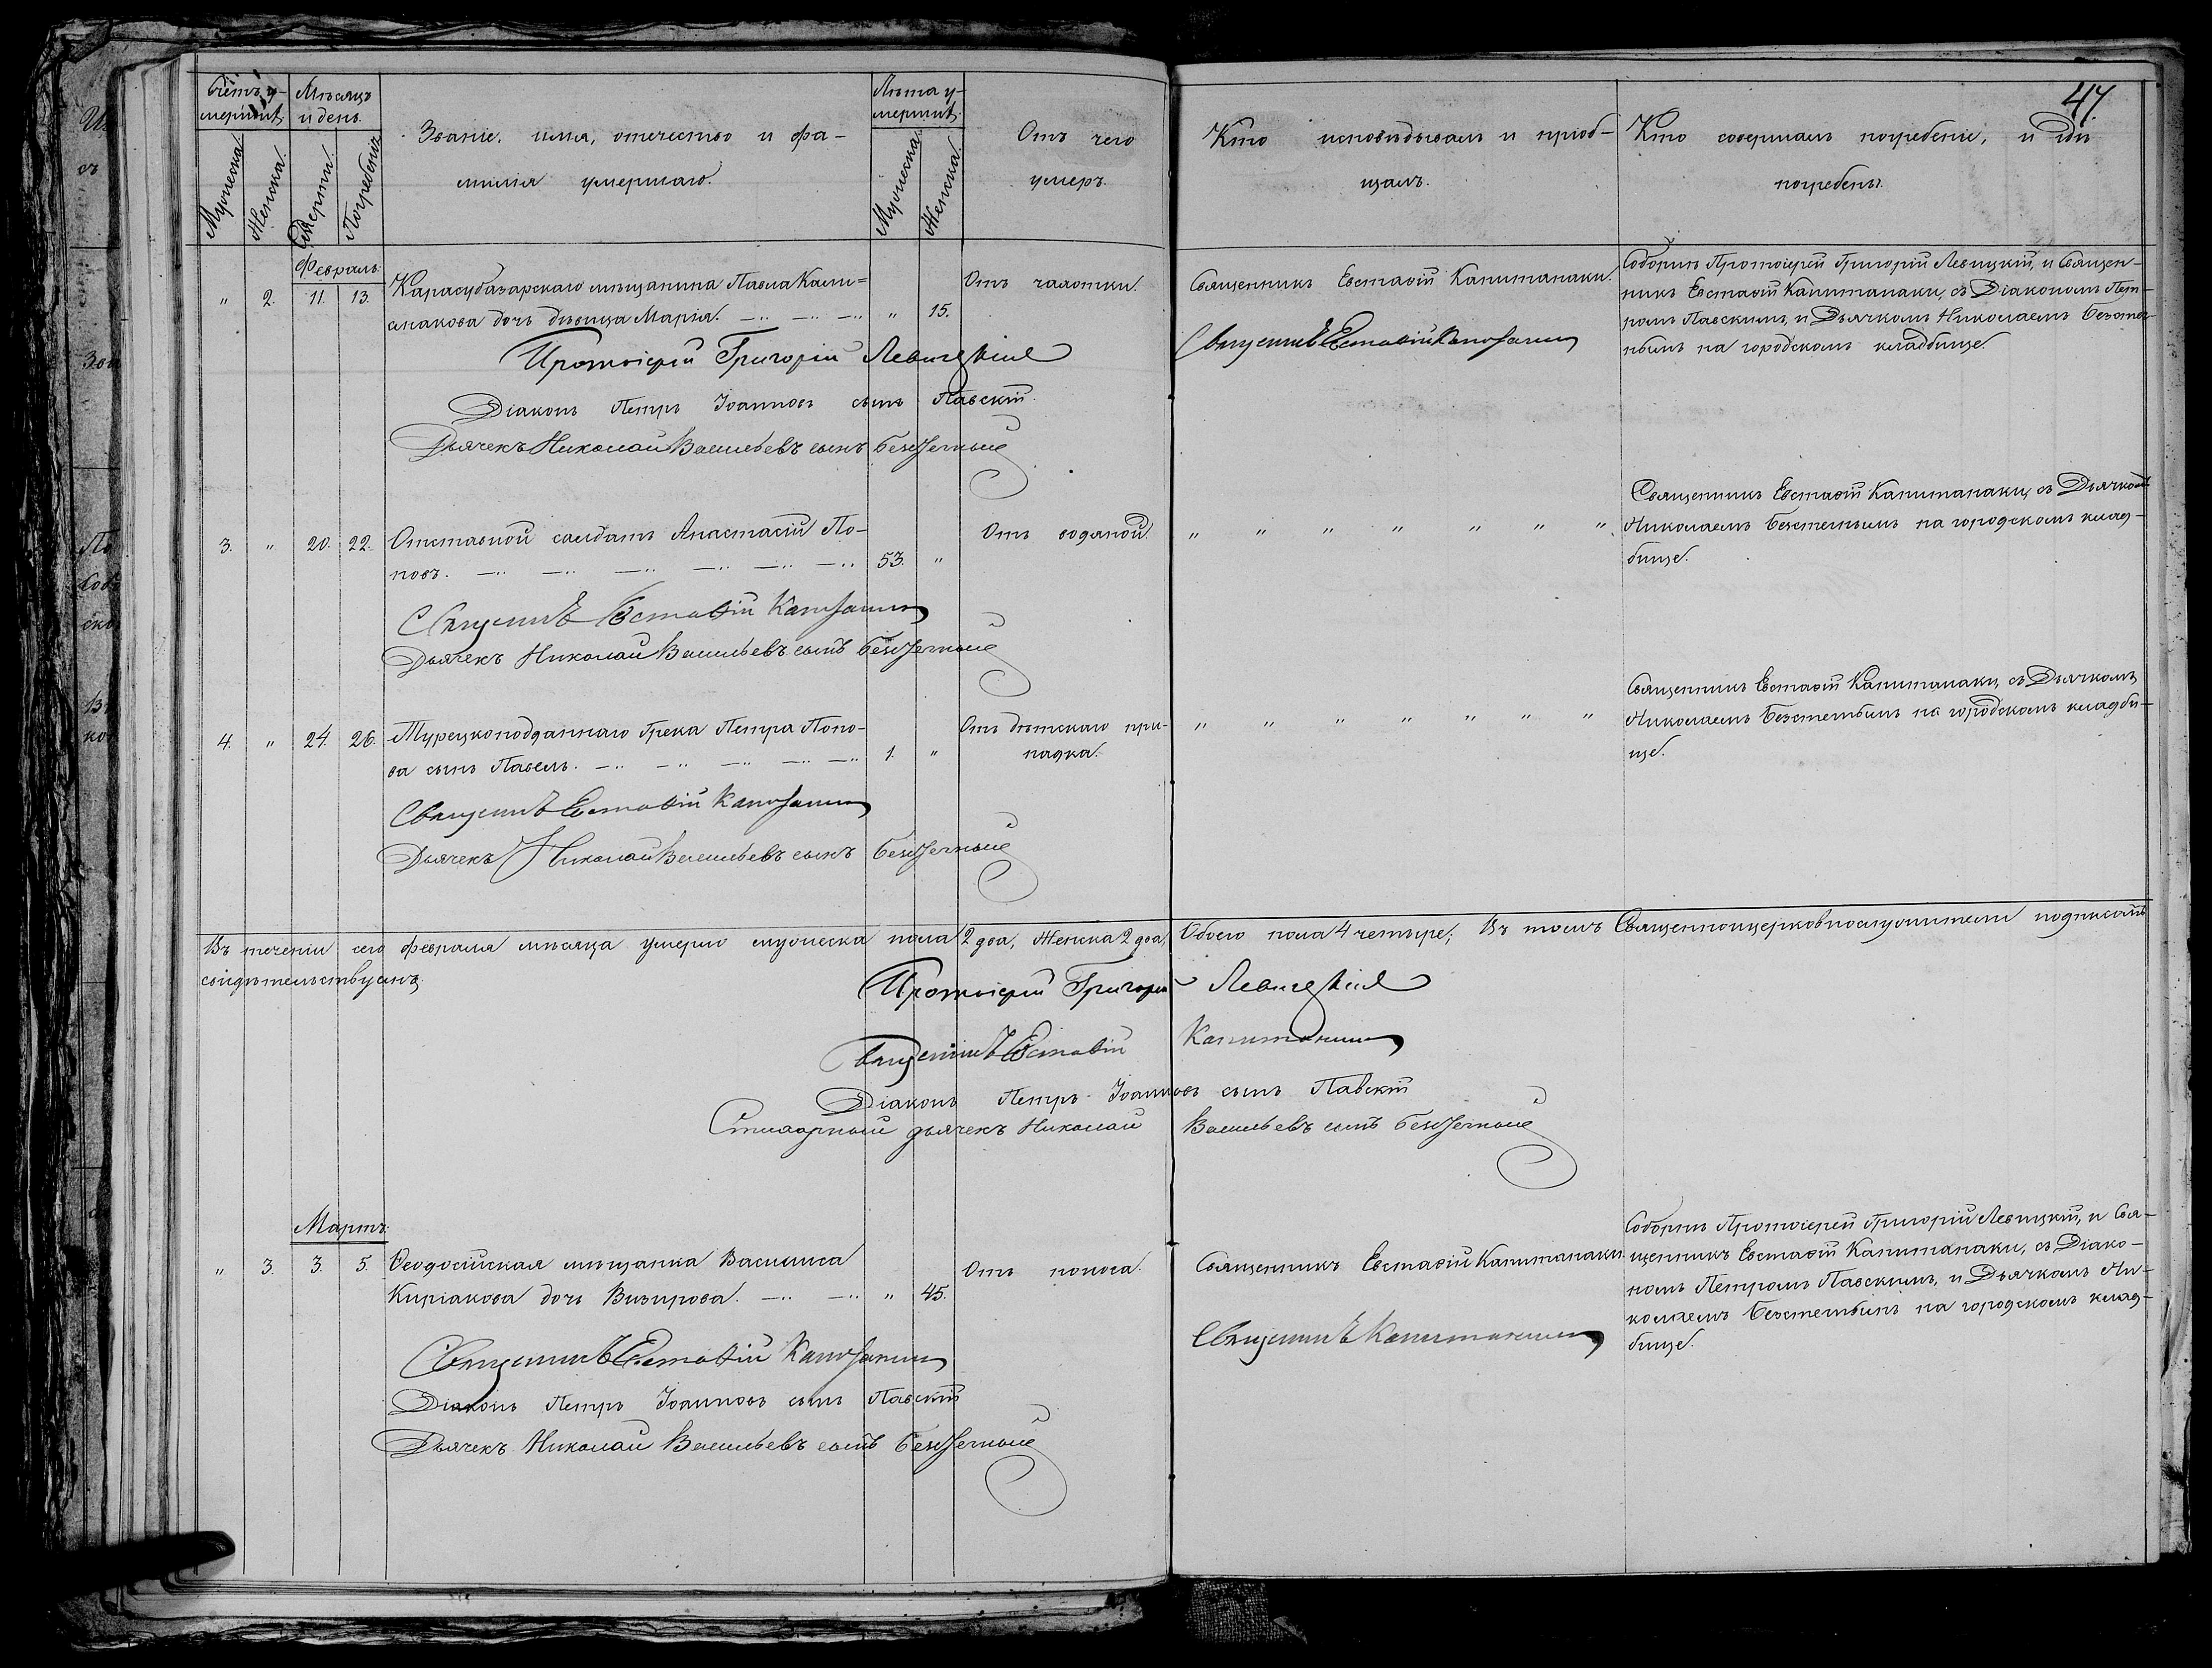 47.
Счетъ у-
мершихъ.
Мѣсяцъ
и день.
Званіе, имя, отечество и фа-
милія умершаго.
Лѣта у-
мершихъ.
Отъ чего
умеръ.
Кто исповѣдывалъ и пріоб-
щалъ.
Кто совершалъ погребеніе, и гдѣ
погребены.
Мужеска.
Женска.
Смерти.
Погребенія.
Мужеска.
Женска.
Февраль.
" 2. 11. 13. Карасубазарскаго мѣщанина Павла
дочь дѣвица Марія. " 15.
Отъ чахотки.
Священникъ Евстафій Капитанаки.
Священникъ Евстафій Капитанаки
Соборнѣ Протоіерей Григорій Левицкій, и Священ-
никъ Евстафій Капитанаки, съ Діакономъ Пет-
ромъ Павскимъ, и Дьячкомъ Николаемъ
на городскомъ кладбищѣ.
Протоіерей Григорій Левицкій
Діаконъ Петръ Іоанновъ сынъ Павскій
Дьячекъ Николай Васильевъ сынъ
3. " 20. 22. Отставной салдатъ Анастасій По-
повъ. 53. "
Отъ водяной.
" " " " " " "
Священникъ Евстафій Капитанаки, съ Дьячкомъ
Николаемъ на городскомъ клад-
бищѣ.
Священникъ Евстафій Капитанаки
Дьячекъ Николай Васильевъ сынъ
4. " 24. 26. Турецкоподданнаго Грека Петра Попо-
ва сынъ Павелъ. 1. "
Отъ дѣтскаго при-
падка.
" " " " " " "
Священникъ Евстафій Капитанаки, съ Дьячкомъ
Николаемъ на городскомъ кладби-
щѣ.
Священникъ Евстафій Капитанаки
Дьячекъ Николай Васильевъ сынъ
Въ теченіи сего февраля мѣсяца умерло мужеска пола 2 два, Женска 2 два, Обоего пола 4 четыре; Въ томъ Священноцерковнослужители подписомъ
свидѣтельствуемъ.
Протоіерей Григорій Левицкій
Священникъ Евстафій Капитанаки
Діаконъ Петръ Іоанновъ сынъ Павскій
Стихарный дьячекъ Николай Васильевъ сынъ
Мартъ.
" 3. 3. 5. Ѳеодосійская мѣщанка Василиса
Киріакова дочь Визирова. " 45.
Отъ поноса.
Священникъ Евстафій Капитанаки.
Священникъ Капитанаки
Соборнѣ Протоіерей Григорій Левицкій, и Свя-
щенникъ Евстафій Капитанаки, съ Діако-
номъ Петромъ Павскимъ, и Дьячкомъ Ни-
колаемъ на городскомъ клад-
бищѣ.
Священникъ Евстафій Капитанаки
Діаконъ Петръ Іоанновъ сынъ Павскій
Дьячекъ Николай Васильевъ сынъ